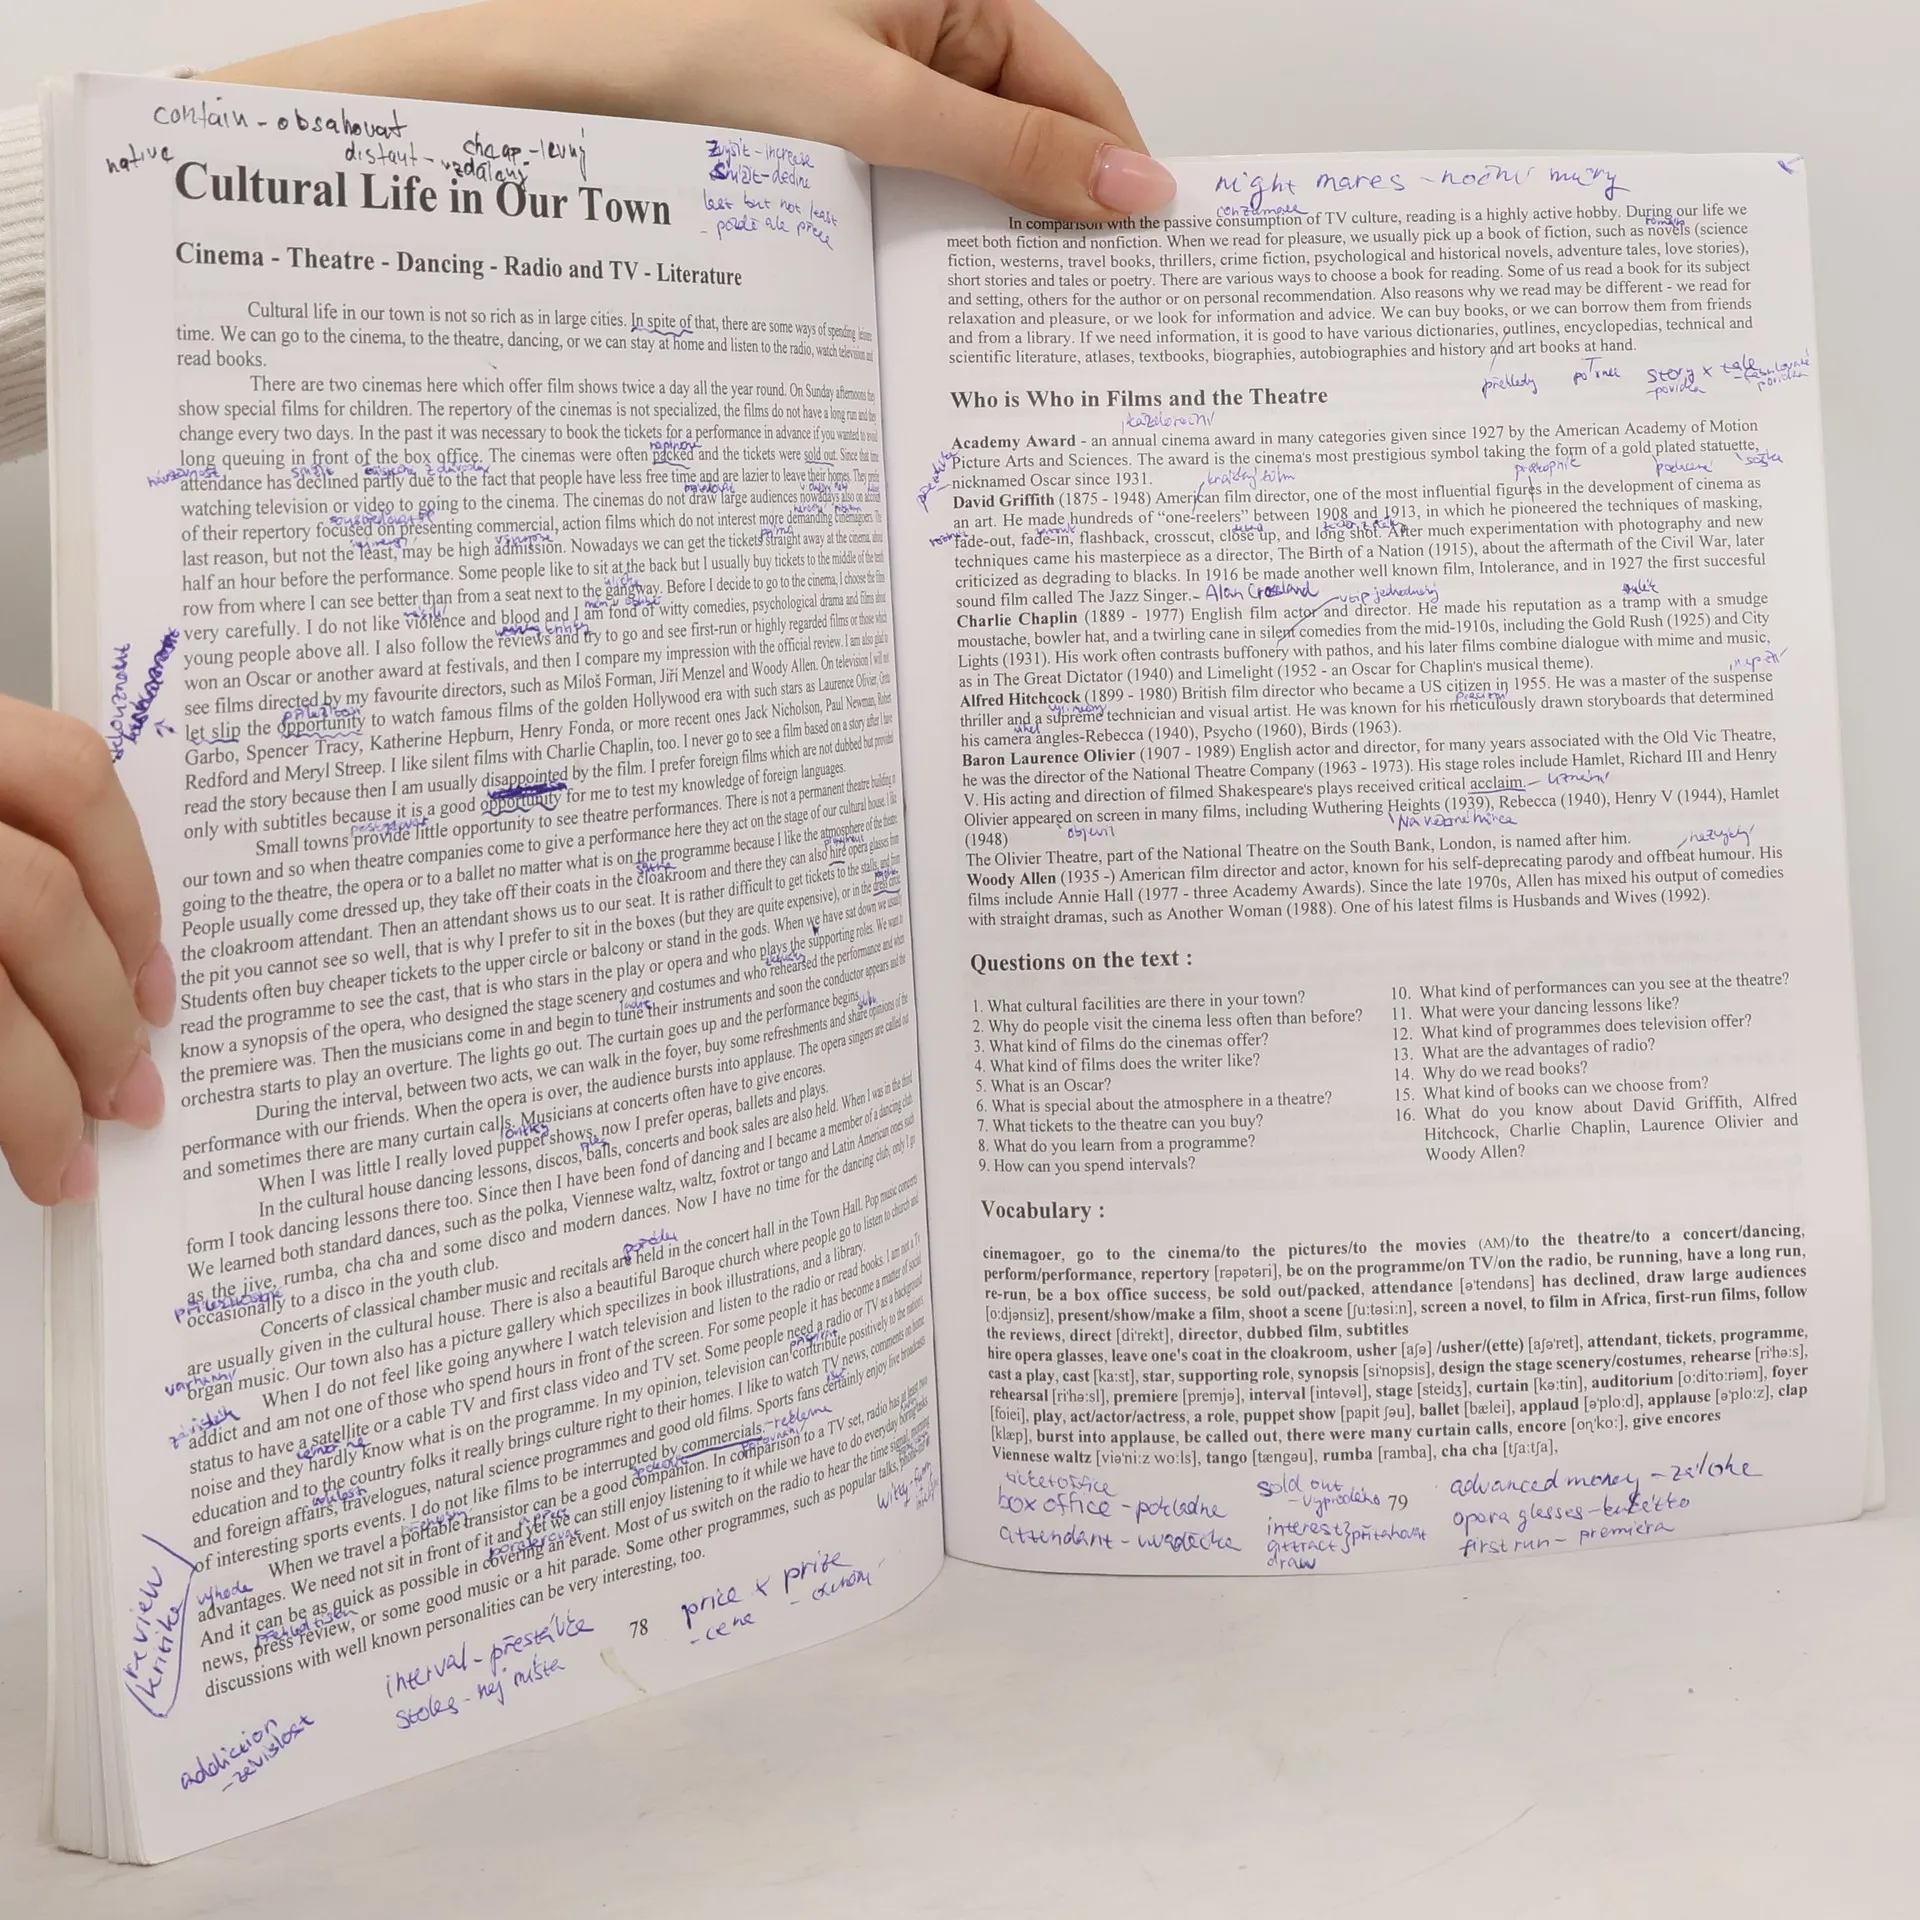 contain - obsahovat
native
distant - vzdálený
cheap - levný
zvýšit - increase
last but not least
Cultural Life in Our Town
Cinema - Theatre - Dancing - Radio and TV - Literature
Cultural life in our town is not so rich as in large cities. In spite of that, there are some ways of spending leisure
time. We can go to the cinema, to the theatre, dancing, or we can stay at home and listen to the radio, watch television and
read books.
There are two cinemas here which offer film shows twice a day all the year round. On Sunday afternoons they
show special films for children. The repertory of the cinemas is not specialized, the films do not have a long run and they
change every two days. In the past it was necessary to book the tickets for a performance in advance if you wanted to avoid
long queuing in front of the box office. The cinemas were often packed and the tickets were sold out. Since that time
attendance has declined partly due to the fact that people have less free time and are lazier to leave their homes. They prefer
watching television or video to going to the cinema. The cinemas do not draw large audiences nowadays also on account
of their repertory focused on presenting commercial, action films which do not interest more demanding cinemagoers. The
last reason, but not the least, may be high admission. Nowadays we can get the tickets straight away at the cinema about
half an hour before the performance. Some people like to sit at the back but I usually buy tickets to the middle of the tenth
row from where I can see better than from a seat next to the gangway. Before I decide to go to the cinema, I choose the film
very carefully. I do not like violence and blood and I am fond of witty comedies, psychological drama and films about
young people above all. I also follow the reviews and try to go and see first-run or highly regarded films or those which
won an Oscar or another award at festivals, and then I compare my impression with the official review. I am also glad to
see films directed by my favourite directors, such as Miloš Forman, Jiří Menzel and Woody Allen. On television I will not
let slip the opportunity to watch famous films of the golden Hollywood era with such stars as Laurence Olivier, Greta
Garbo, Spencer Tracy, Katherine Hepburn, Henry Fonda, or more recent ones Jack Nicholson, Paul Newman, Robert
Redford and Meryl Streep. I like silent films with Charlie Chaplin, too. I never go to see a film based on a story after I have
read the story because then I am usually disappointed by the film. I prefer foreign films which are not dubbed but provided
only with subtitles because it is a good opportunity for me to test my knowledge of foreign languages.
Small towns provide little opportunity to see theatre performances. There is not a permanent theatre building in
our town and so when theatre companies come to give a performance here they act on the stage of our cultural house. I like
going to the theatre, the opera or to a ballet no matter what is on the programme because I like the atmosphere of the theatre.
People usually come dressed up, they take off their coats in the cloakroom and there they can also hire opera glasses from
the cloakroom attendant. Then an attendant shows us to our seat. It is rather difficult to get tickets to the stalls, and from
the pit you cannot see so well, that is why I prefer to sit in the boxes (but they are quite expensive), or in the dress circle.
Students often buy cheaper tickets to the upper circle or balcony or stand in the gods. When we have sat down we usually
read the programme to see the cast, that is who stars in the play or opera and who plays the supporting roles. We want to
know a synopsis of the opera, who designed the stage scenery and costumes and who rehearsed the performance and when
the premiere was. Then the musicians come in and begin to tune their instruments and soon the conductor appears and the
orchestra starts to play an overture. The lights go out. The curtain goes up and the performance begins.
During the interval, between two acts, we can walk in the foyer, buy some refreshments and share opinions of the
performance with our friends. When the opera is over, the audience bursts into applause. The opera singers are called out
and sometimes there are many curtain calls. Musicians at concerts often have to give encores.
When I was little I really loved puppet shows, now I prefer operas, ballets and plays.
In the cultural house dancing lessons, discos, balls, concerts and book sales are also held. When I was in the third
form I took dancing lessons there too. Since then I have been fond of dancing and I became a member of a dancing club.
We learned both standard dances, such as the polka, Viennese waltz, waltz, foxtrot or tango and Latin American ones such
as the jive, rumba, cha cha and some disco and modern dances. Now I have no time for the dancing club, only I go
occasionally to a disco in the youth club.
Concerts of classical chamber music and recitals are held in the concert hall in the Town Hall. Pop music concerts
are usually given in the cultural house. There is also a beautiful Baroque church where people go to listen to church and
organ music. Our town also has a picture gallery which specilizes in book illustrations, and a library.
When I do not feel like going anywhere I watch television and listen to the radio or read books. I am not a TV
addict and am not one of those who spend hours in front of the screen. For some people it has become a matter of social
status to have a satellite or a cable TV and first class video and TV set. Some people need a radio or TV as a background
noise and they hardly know what is on the programme. In my opinion, television can contribute positively to the nation's
education and to the country folks it really brings culture right to their homes. I like to watch TV news, comments on home
and foreign affairs, travelogues, natural science programmes and good old films. Sports fans certainly enjoy live broadcasts
of interesting sports events. I do not like films to be interrupted by commercials. - reklama
When we travel a portable transistor can be a good companion. In comparison to a TV set, radio has at least two
advantages. We need not sit in front of it and yet we can still enjoy listening to it while we have to do everyday boring tasks.
And it can be as quick as possible in covering an event. Most of us switch on the radio to hear the time signal, morning
news, press review, or some good music or a hit parade. Some other programmes, such as popular talks,
discussions with well known personalities can be very interesting, too.
review
kritika
výhoda
addiction
- závislost
interval - přestávka
78
price x prize
- cena
night mares - noční můry
In comparison with the passive consumption of TV culture, reading is a highly active hobby. During our life we
meet both fiction and nonfiction. When we read for pleasure, we usually pick up a book of fiction, such as novels (science
fiction, westerns, travel books, thrillers, crime fiction, psychological and historical novels, adventure tales, love stories),
short stories and tales or poetry. There are various ways to choose a book for reading. Some of us read a book for its subject
and setting, others for the author or on personal recommendation. Also reasons why we read may be different - we read for
relaxation and pleasure, or we look for information and advice. We can buy books, or we can borrow them from friends
and from a library. If we need information, it is good to have various dictionaries, outlines, encyclopedias, technical and
scientific literature, atlases, textbooks, biographies, autobiographies and history and art books at hand.
přehledy
story x tale
Who is Who in Films and the Theatre
každoroční
Academy Award - an annual cinema award in many categories given since 1927 by the American Academy of Motion
Picture Arts and Sciences. The award is the cinema's most prestigious symbol taking the form of a gold plated statuette,
nicknamed Oscar since 1931.
krátký film
David Griffith (1875 - 1948) American film director, one of the most influential figures in the development of cinema as
an art. He made hundreds of "one-reelers" between 1908 and 1913, in which he pioneered the techniques of masking,
fade-out, fade-in, flashback, crosscut, close up, and long shot. After much experimentation with photography and new
techniques came his masterpiece as a director, The Birth of a Nation (1915), about the aftermath of the Civil War, later
criticized as degrading to blacks. In 1916 be made another well known film, Intolerance, and in 1927 the first succesful
sound film called The Jazz Singer. - Alan Crosland
Charlie Chaplin (1889 - 1977) English film actor and director. He made his reputation as a tramp with a smudge
moustache, bowler hat, and a twirling cane in silent comedies from the mid-1910s, including the Gold Rush (1925) and City
Lights (1931). His work often contrasts buffonery with pathos, and his later films combine dialogue with mime and music,
as in The Great Dictator (1940) and Limelight (1952 - an Oscar for Chaplin's musical theme).
Alfred Hitchcock (1899 - 1980) British film director who became a US citizen in 1955. He was a master of the suspense
thriller and a supreme technician and visual artist. He was known for his meticulously drawn storyboards that determined
his camera angles-Rebecca (1940), Psycho (1960), Birds (1963).
Baron Laurence Olivier (1907 - 1989) English actor and director, for many years associated with the Old Vic Theatre,
he was the director of the National Theatre Company (1963 - 1973). His stage roles include Hamlet, Richard III and Henry
V. His acting and direction of filmed Shakespeare's plays received critical acclaim. - uznání
Olivier appeared on screen in many films, including Wuthering Heights (1939), Rebecca (1940), Henry V (1944), Hamlet
(1948)
objevil
Na větrné hůrce
The Olivier Theatre, part of the National Theatre on the South Bank, London, is named after him.
Woody Allen (1935 -) American film director and actor, known for his self-deprecating parody and offbeat humour. His
films include Annie Hall (1977 - three Academy Awards). Since the late 1970s, Allen has mixed his output of comedies
with straight dramas, such as Another Woman (1988). One of his latest films is Husbands and Wives (1992).
Questions on the text :
1. What cultural facilities are there in your town?
2. Why do people visit the cinema less often than before?
3. What kind of films do the cinemas offer?
4. What kind of films does the writer like?
5. What is an Oscar?
6. What is special about the atmosphere in a theatre?
7. What tickets to the theatre can you buy?
8. What do you learn from a programme?
9. How can you spend intervals?
10. What kind of performances can you see at the theatre?
11. What were your dancing lessons like?
12. What kind of programmes does television offer?
13. What are the advantages of radio?
14. Why do we read books?
15. What kind of books can we choose from?
16. What do you know about David Griffith, Alfred
Hitchcock, Charlie Chaplin, Laurence Olivier and
Woody Allen?
Vocabulary :
cinemagoer, go to the cinema/to the pictures/to the movies (AM)/to the theatre/to a concert/dancing,
perform/performance, repertory [repətəri], be on the programme/on TV/on the radio, be running, have a long run,
re-run, be a box office success, be sold out/packed, attendance [ə'tendəns] has declined, draw large audiences
[o:djənsiz], present/show/make a film, shoot a scene [ʃu:təsi:n], screen a novel, to film in Africa, first-run films, follow
the reviews, direct [di'rekt], director, dubbed film, subtitles
hire opera glasses, leave one's coat in the cloakroom, usher [aʃə] /usher/(ette) [aʃə'ret], attendant, tickets, programme,
cast a play, cast [ka:st], star, supporting role, synopsis [si'nopsis], design the stage scenery/costumes, rehearse [ri'hə:s],
rehearsal [ri'hə:sl], premiere [premjə], interval [intəvəl], stage [steidʒ], curtain [kə:tin], auditorium [o:di'to:riəm], foyer
[foiei], play, act/actor/actress, a role, puppet show [papit ʃəu], ballet [bælei], applaud [ə'plo:d], applause [ə'plo:z], clap
[klæp], burst into applause, be called out, there were many curtain calls, encore [oŋ'ko:], give encores
Viennese waltz [viə'ni:z wo:ls], tango [tæŋgəu], rumba [ramba], cha cha [tʃa:tʃa],
ticket office
box office - pokladna
attendant - uvaděčka
sold out
- vyprodáno
interest
attract } přitahovat
draw
79
advanced money - záloha
opera glasses - kukátko
first run - premiéra